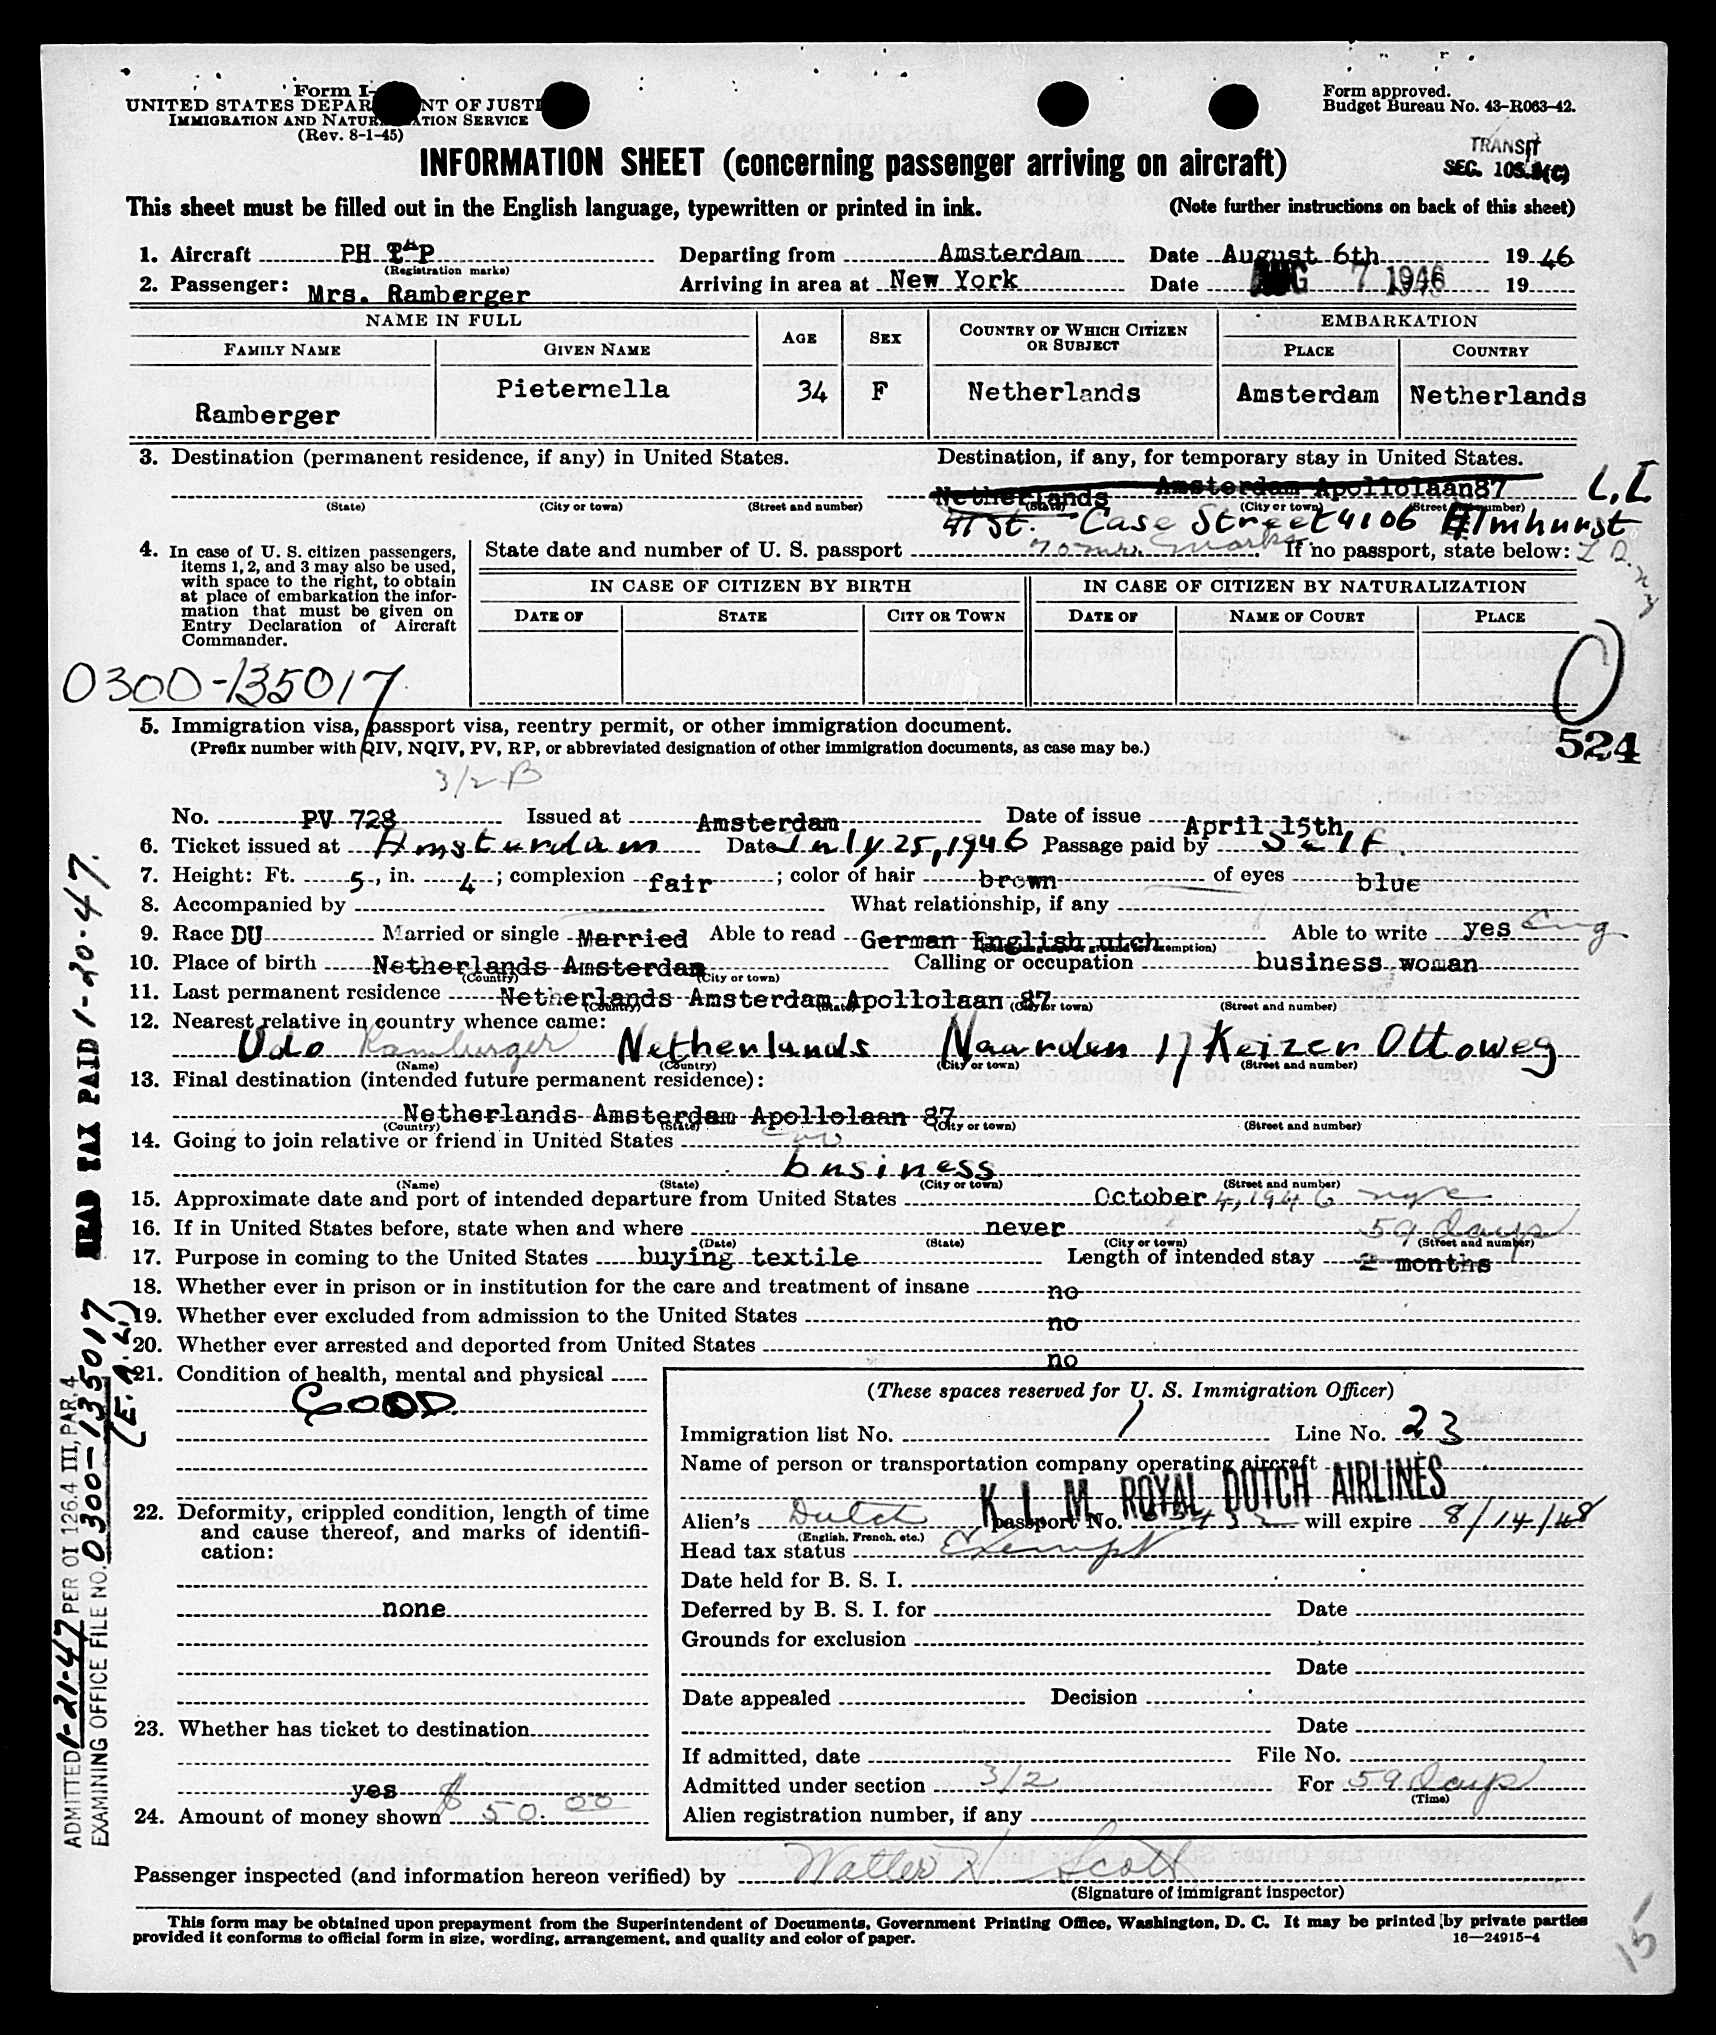 Form I-
UNITED STATES DEPAR NT OF JUSTI
IMMIGRATION AND NATUR ATION SERVICE
(Rev. 8-1-45)
Form approved.
Budget Bureau No. 43-R063-42.
TRANSIT
SEC. 105.3(C)
INFORMATION SHEET (concerning passenger arriving on aircraft)
This sheet must be filled out in the English language, typewritten or printed in ink. (Note further instructions on back of this sheet)
1. Aircraft PH TAP Departing from Amsterdam Date August 6th 1946
(Registration marks)
2. Passenger: Mrs. Ramberger Arriving in area at New York Date AUG 7 1946 19
NAME IN FULL AGE SEX COUNTRY OF WHICH CITIZEN OR SUBJECT EMBARKATION
FAMILY NAME GIVEN NAME PLACE COUNTRY
Ramberger Pieternella 34 F Netherlands Amsterdam Netherlands
3. Destination (permanent residence, if any) in United States. Destination, if any, for temporary stay in United States.
Netherlands Amsterdam Apollolaan87 L.I
(State) (City or town) (Street and number) (State) (City or town) (Street and number)
41 St. Case Street 4106 Elmhurst
4. In case of U. S. citizen passengers, items 1, 2, and 3 may also be used, with space to the right, to obtain at place of embarkation the information that must be given on Entry Declaration of Aircraft Commander.
State date and number of U. S. passport If no passport, state below:
IN CASE OF CITIZEN BY BIRTH IN CASE OF CITIZEN BY NATURALIZATION
DATE OF STATE CITY OR TOWN DATE OF NAME OF COURT PLACE
0300-135017
O
524
5. Immigration visa, passport visa, reentry permit, or other immigration document.
(Prefix number with QIV, NQIV, PV, RP, or abbreviated designation of other immigration documents, as case may be.)
3/2 B
No. PV 728 Issued at Amsterdam Date of issue April 15th
6. Ticket issued at Amsterdam Date July 25, 1946 Passage paid by Self.
7. Height: Ft. 5, in. 4; complexion fair; color of hair brown of eyes blue
8. Accompanied by What relationship, if any
9. Race DU Married or single Married Able to read German English utch Able to write yes Eng
10. Place of birth Netherlands Amsterdam Calling or occupation business woman
(Country) (City or town)
11. Last permanent residence Netherlands Amsterdam Apollolaan 87
(Country) (State) (City or town) (Street and number)
12. Nearest relative in country whence came:
Udo Ramberger Netherlands Naarden 17 Keizer Ottoweg
(Name) (Country) (City or town) (Street and number)
13. Final destination (intended future permanent residence):
Netherlands Amsterdam Apollolaan 87
(Country) (State) (City or town) (Street and number)
14. Going to join relative or friend in United States
business
(Name) (State) (City or town) (Street and number)
15. Approximate date and port of intended departure from United States October 4, 1946 nyc
16. If in United States before, state when and where never 59 days
(Date) (State) (City or town) (Street and number)
17. Purpose in coming to the United States buying textile Length of intended stay 2 months
18. Whether ever in prison or in institution for the care and treatment of insane no
19. Whether ever excluded from admission to the United States no
20. Whether ever arrested and deported from United States no
21. Condition of health, mental and physical
GOOD
22. Deformity, crippled condition, length of time and cause thereof, and marks of identification:
none
23. Whether has ticket to destination
yes
24. Amount of money shown $ 50.00
(These spaces reserved for U. S. Immigration Officer)
Immigration list No. 1 Line No. 23
Name of person or transportation company operating aircraft
K. L. M. ROYAL DUTCH AIRLINES
Alien's Dutch passport No. will expire 8/14/48
(English, French, etc.)
Head tax status Exempt
Date held for B. S. I.
Deferred by B. S. I. for Date
Grounds for exclusion
Date
Date appealed Decision
Date
If admitted, date File No.
Admitted under section 3/2 For 59 Days
(Time)
Alien registration number, if any
Passenger inspected (and information hereon verified) by Walter H Scott
(Signature of immigrant inspector)
This form may be obtained upon prepayment from the Superintendent of Documents, Government Printing Office, Washington, D. C. It may be printed by private parties
provided it conforms to official form in size, wording, arrangement, and quality and color of paper. 16—24915-4
15
HEAD TAX PAID 1-20-47.
ADMITTED 1-21-47 PER OI 126.4 III, PAR. 4
EXAMINING OFFICE FILE NO. 0300-135017
(E.A.L.)